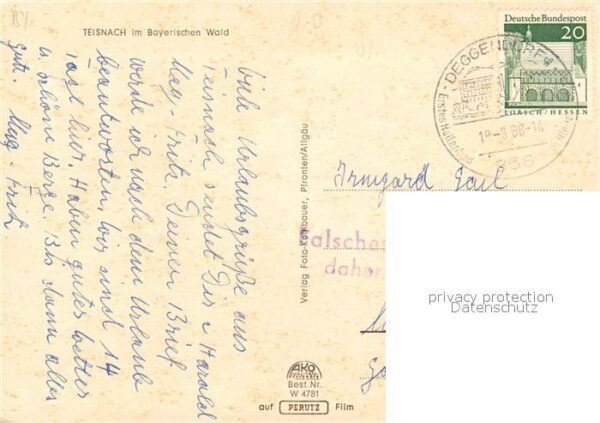 TEISNACH im Bayerischen Wald
Viele Urlaubsgrüße aus
Teisnach sendet Dir u Harald
Mag - Fritz. Deinen Brief
werde ich nach dem Urlaube
beantworten. Wir sind 14
Tage hier. Haben gutes Wetter
u. schöne Berge. Bis dann alles
gute. Mag - Fritz
Verlag Foto-Kohlbauer, Pfronten/Allgäu
AKO
Best.Nr.
W 4781
auf PERUTZ Film
Deutsche Bundespost
20
LORSCH/HESSEN
DEGGENDORF
Erstes Hallenbad
-8.68-14
836
Irmgard
Falsche
daher
privacy protection
Datenschutz